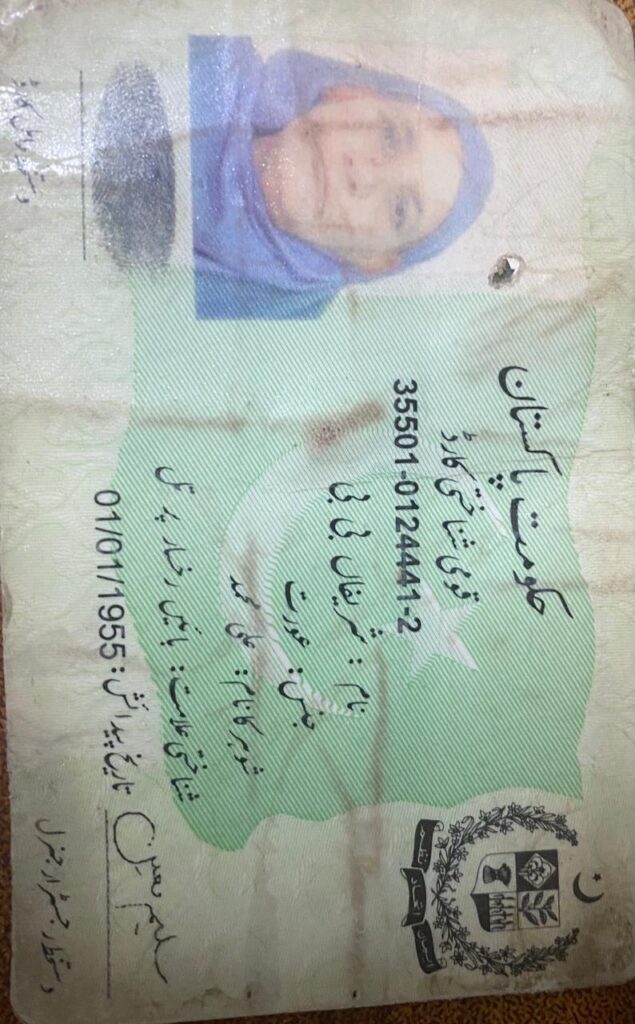 حکومت پاکستان
قومی شناختی کارڈ
35501-0124441-2
نام : شریفاں بی بی
جنس : عورت
شوہر کا نام : علی محمد
شناختی علامت : بائیں رخسار پر تل
تاریخ پیدائش : 01/01/1955
دستخط رجسٹرار جنرل